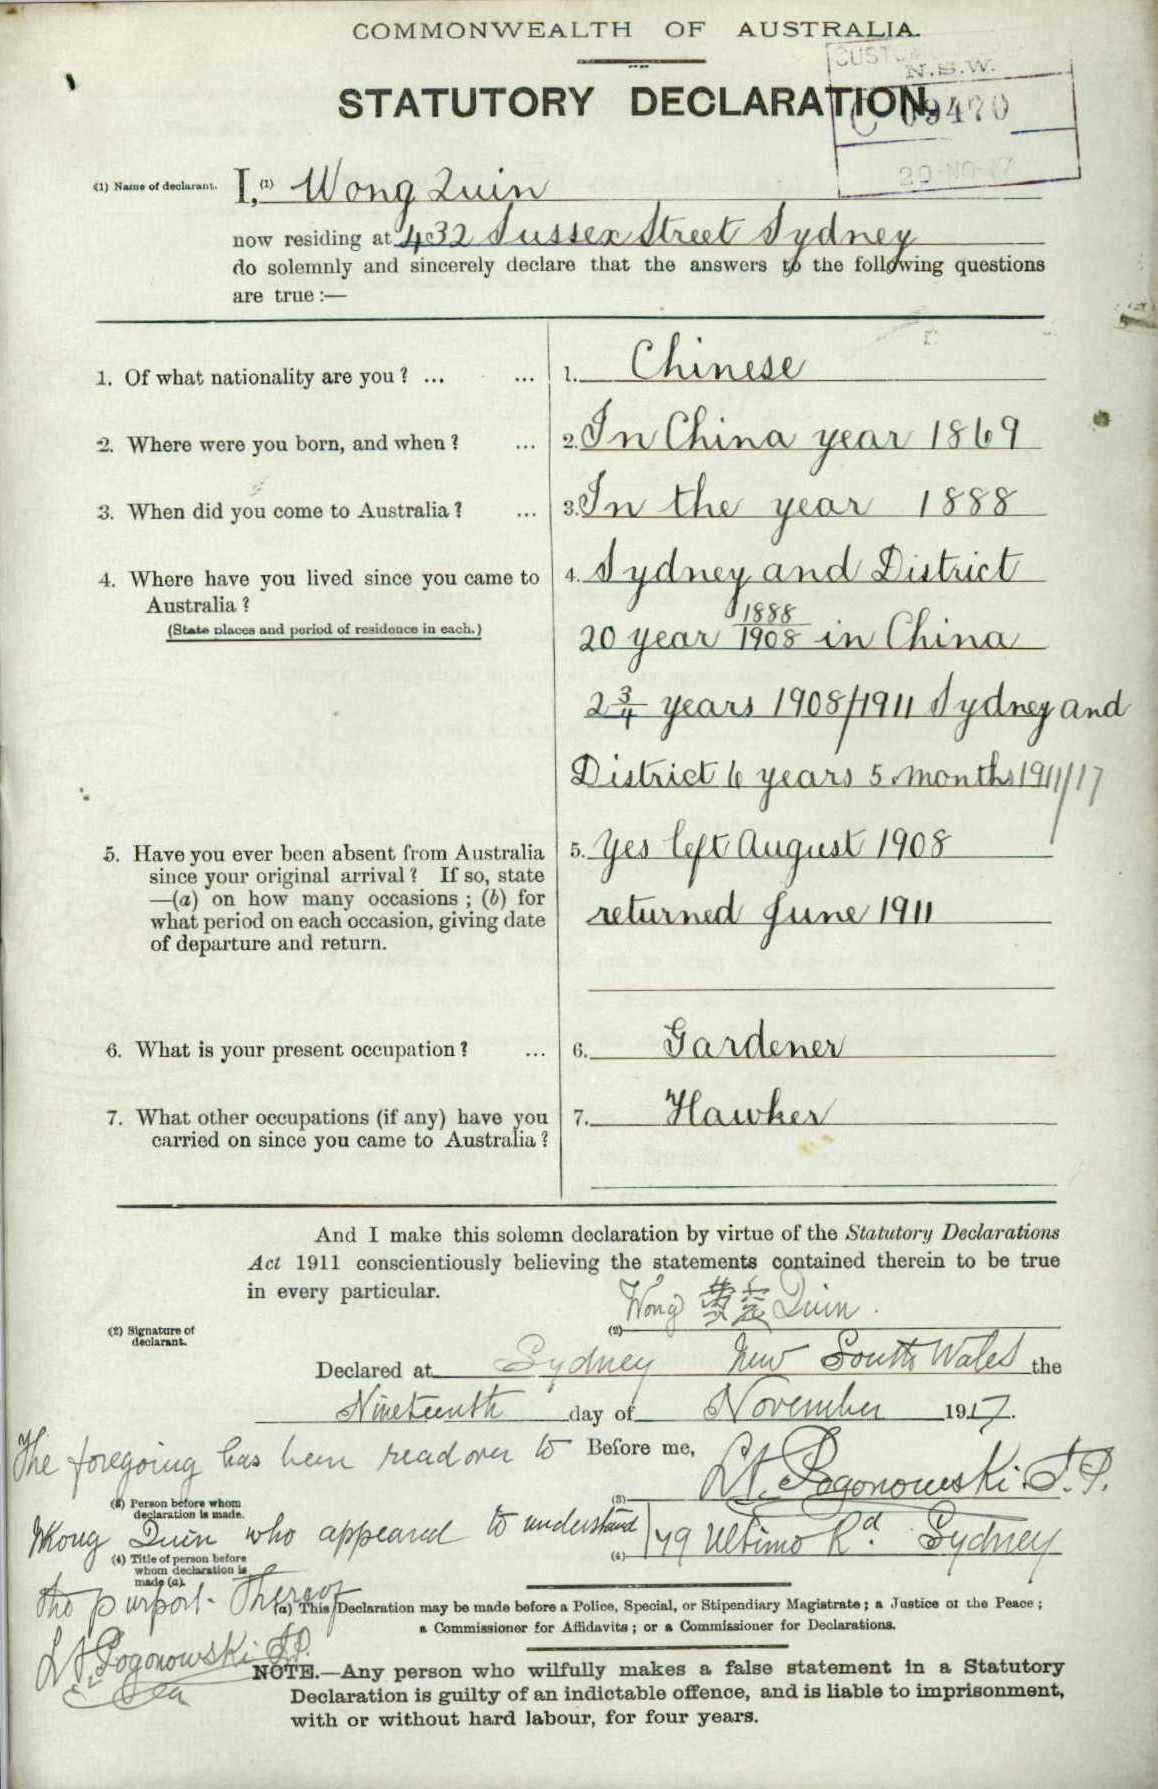 COMMONWEALTH OF AUSTRALIA.
STATUTORY DECLARATION.
CUST
N.S.W.
C 09470
20 NO 17
(1) Name of declarant.
I, (1) Wong Quin
now residing at 432 Sussex Street Sydney
do solemnly and sincerely declare that the answers to the following questions
are true :—
1. Of what nationality are you ? ... ... 1. Chinese
2. Where were you born, and when ? ... 2. In China year 1869
3. When did you come to Australia ? ... 3. In the year 1888
4. Where have you lived since you came to
Australia ?
(State places and period of residence in each.)
4. Sydney and District
20 year 1888/1908 in China
2 3/4 years 1908/1911 Sydney and
District 6 years 5 months 1911/17
5. Have you ever been absent from Australia
since your original arrival ? If so, state
—(a) on how many occasions ; (b) for
what period on each occasion, giving date
of departure and return.
5. Yes left August 1908
returned June 1911
6. What is your present occupation ? ... 6. Gardener
7. What other occupations (if any) have you
carried on since you came to Australia ?
7. Hawker
And I make this solemn declaration by virtue of the Statutory Declarations
Act 1911 conscientiously believing the statements contained therein to be true
in every particular.
(2) Signature of
declarant.
(2) Wong 黄 Quin
Declared at Sydney New South Wales the
Nineteenth day of November 1917.
The foregoing has been read over to
Wong Quin who appeared to understand
the purport thereof
Pogonowski J.P.
Before me,
(3) Person before whom
declaration is made.
(3) Pogonowski. J.P.
(4) Title of person before
whom declaration is
made (a).
(4) 179 Ultimo Rd. Sydney
(a) This Declaration may be made before a Police, Special, or Stipendiary Magistrate ; a Justice of the Peace ;
a Commissioner for Affidavits ; or a Commissioner for Declarations.
NOTE.—Any person who wilfully makes a false statement in a Statutory
Declaration is guilty of an indictable offence, and is liable to imprisonment,
with or without hard labour, for four years.